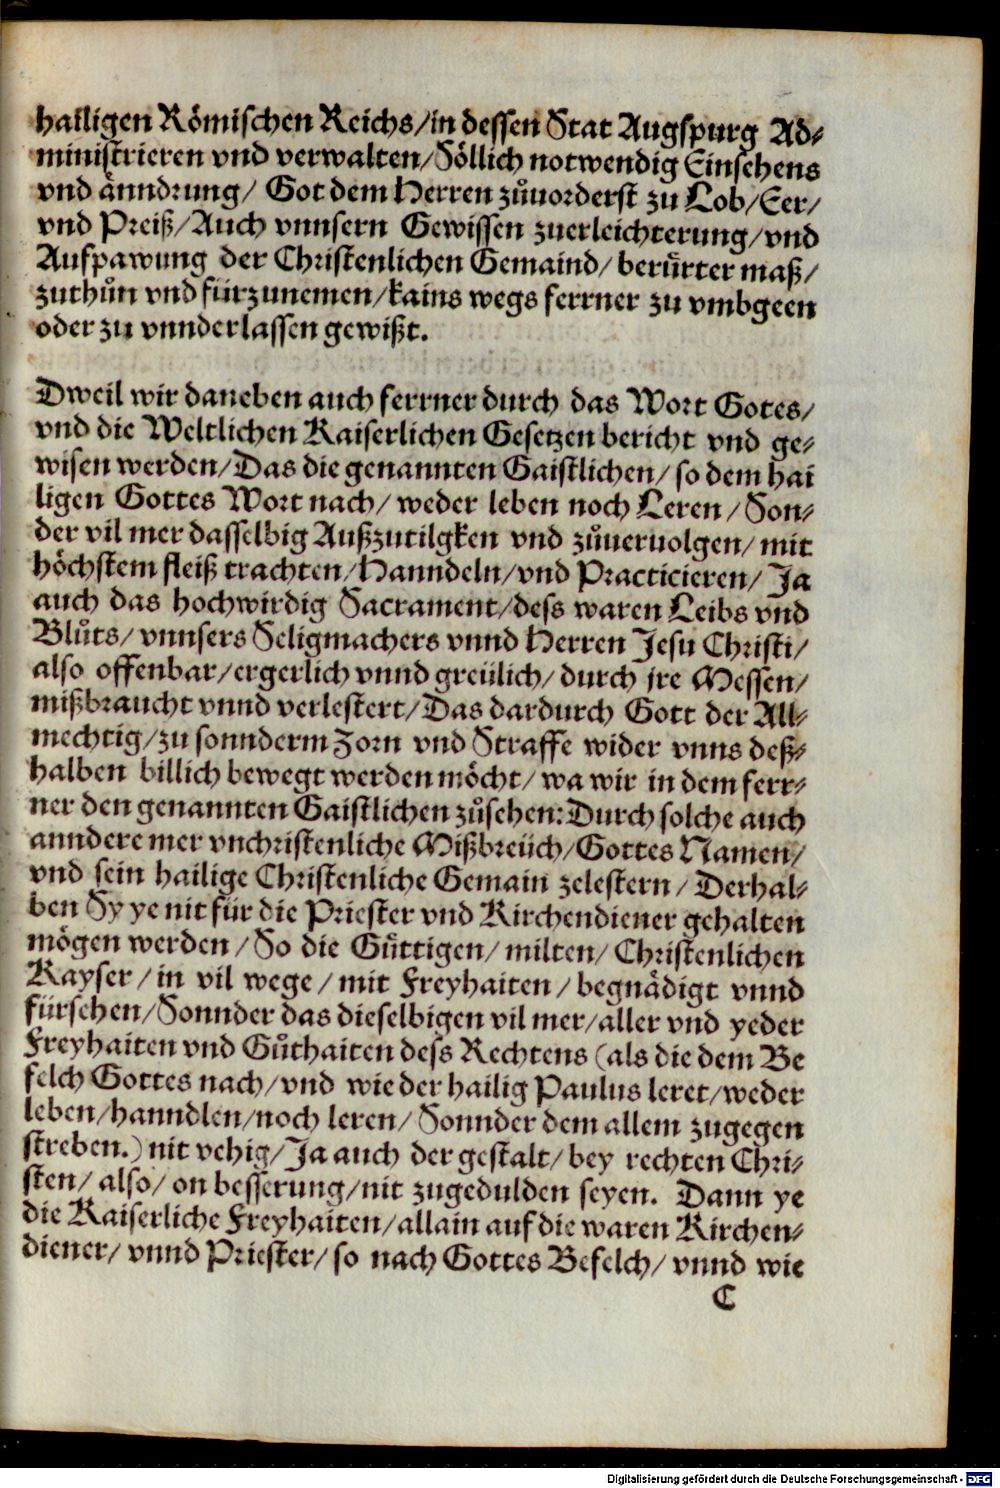 hailigen Römischen Reichs/in dessen Stat Augspurg Ad⸗
ministrieren vnd verwalten/Söllich notwendig Einsehens
vnd änndrung/ Got dem Herren zůuorderst zu Lob/Eer/
vnd Preiß/Auch vnnsern Gewissen zuerleichterung/vnd
Aufpawung der Christenlichen Gemaind/ berürter maß/
zuthůn vnd fürzunemen/kains wegs ferrner zu vmbgeen
oder zu vnnderlassen gewißt.
Dweil wir daneben auch ferrner durch das Wort Gotes/
vnd die Weltlichen Kaiserlichen Gesetzen bericht vnd ge⸗
wisen werden/Das die genannten Gaistlichen/ so dem hai
ligen Gottes Wort nach/ weder leben noch Leren/ Son⸗
der vil mer dasselbig Außzutilgken vnd zůueruolgen/ mit
höchstem fleiß trachten/Hanndeln/vnd Practicieren/ Ja
auch das hochwirdig Sacrament/dess waren Leibs vnd
Blůts/ vnnsers Seligmachers vnnd Herren Jesu Christi/
also offenbar/ergerlich vnnd greülich/ durch jre Messen/
mißbraucht vnnd verlestert/Das dardurch Gott der All⸗
mechtig/zu sonnderm Zorn vnd Straffe wider vnns deß⸗
halben billich bewegt werden möcht/ wa wir in dem ferr⸗
ner den genannten Gaistlichen zůsehen:Durch solche auch
anndere mer vnchristenliche Mißbreüch/Gottes Namen/
vnd sein hailige Christenliche Gemain zelestern/ Derhal⸗
ben Sy ye nit für die Priester vnd Kirchendiener gehalten
mögen werden/So die Güttigen/ milten/ Christenlichen
Kayser/in vil wege/ mit Freyhaiten/ begnädigt vnnd
fürsehen/Sonnder das dieselbigen vil mer/aller vnd yeder
Freyhaiten vnd Gůthaiten dess Rechtens (als die dem Be
felch Gottes nach/vnd wie der hailig Paulus leret/weder
leben/hanndlen/noch leren/ Sonnder dem allem zugegen
streben.) nit vehig/Ja auch der gestalt/ bey rechten Chri⸗
sten/ also/ on besserung/nit zugedulden seyen. Dann ye
die Kaiserliche Freyhaiten/allain auf die waren Kirchen⸗
diener/ vnnd Priester/ so nach Gottes Befelch/ vnnd wie
C
Digitalisierung gefördert durch die Deutsche Forschungsgemeinschaft - DFG